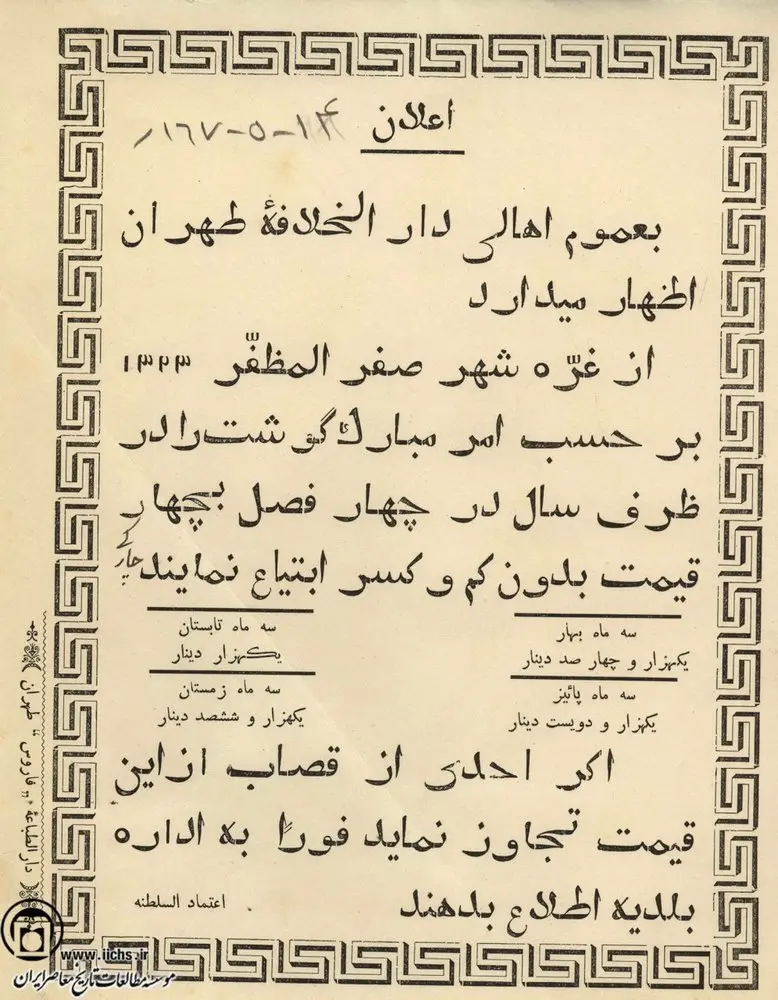 اعلان
۱۶۷-۵-۱۴
بعموم اهالی دار الخلافهٔ طهران
اظهار میدارد
از غرّه شهر صفر المظفّر ۱۳۲۳
بر حسب امر مبارک گوشت را در
ظرف سال در چهار فصل بچهار
قیمت بدون کم و کسر ابتیاع نمایند
سه ماه بهار
یکهزار و چهار صد دینار
سه ماه تابستان
یکهزار دینار
سه ماه پائیز
یکهزار و دویست دینار
سه ماه زمستان
یکهزار و ششصد دینار
اکر احدی از قصاب ازاین
قیمت تجاوز نماید فوراً به اداره
بلدیه اطلاع بدهند
اعتماد السلطنه
دارالطباعهٔ „فاروس“ طهران
www.iichs.ir
موسسه مطالعات تاریخ معاصر ایران